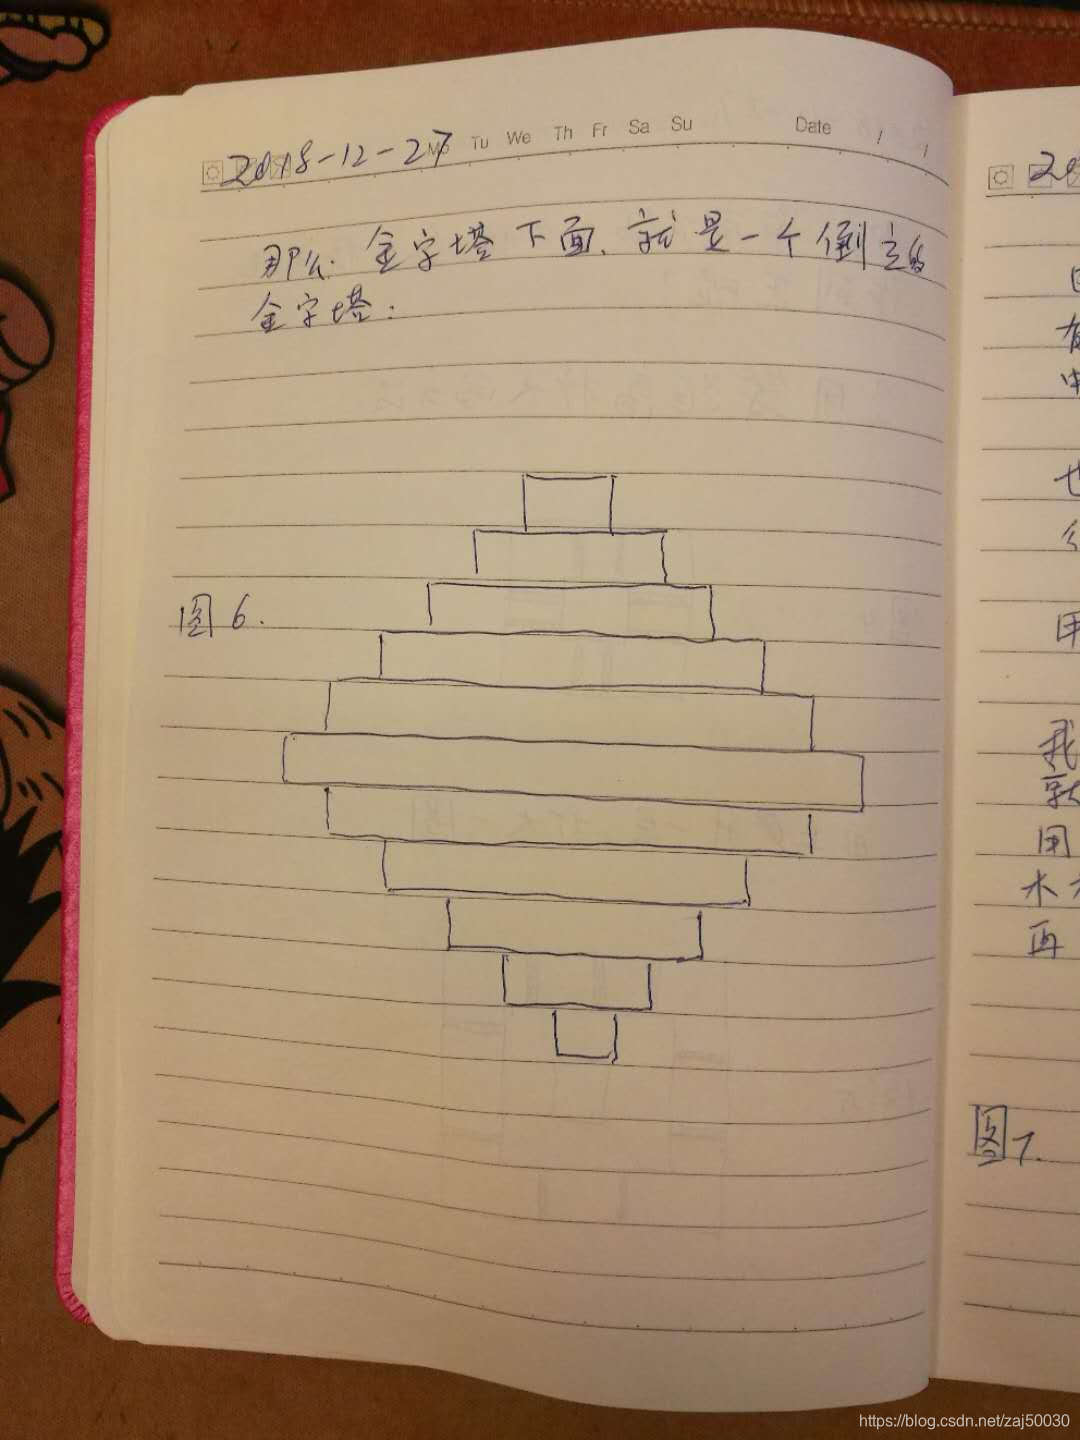 2018-12-27
Mo Tu We Th Fr Sa Su Date / /
那么.金字塔下面.就是一个倒立的
金字塔:
图6.
20
有
中
也
用
我
就
用
木
再
图7.
https://blog.csdn.net/zaj50030